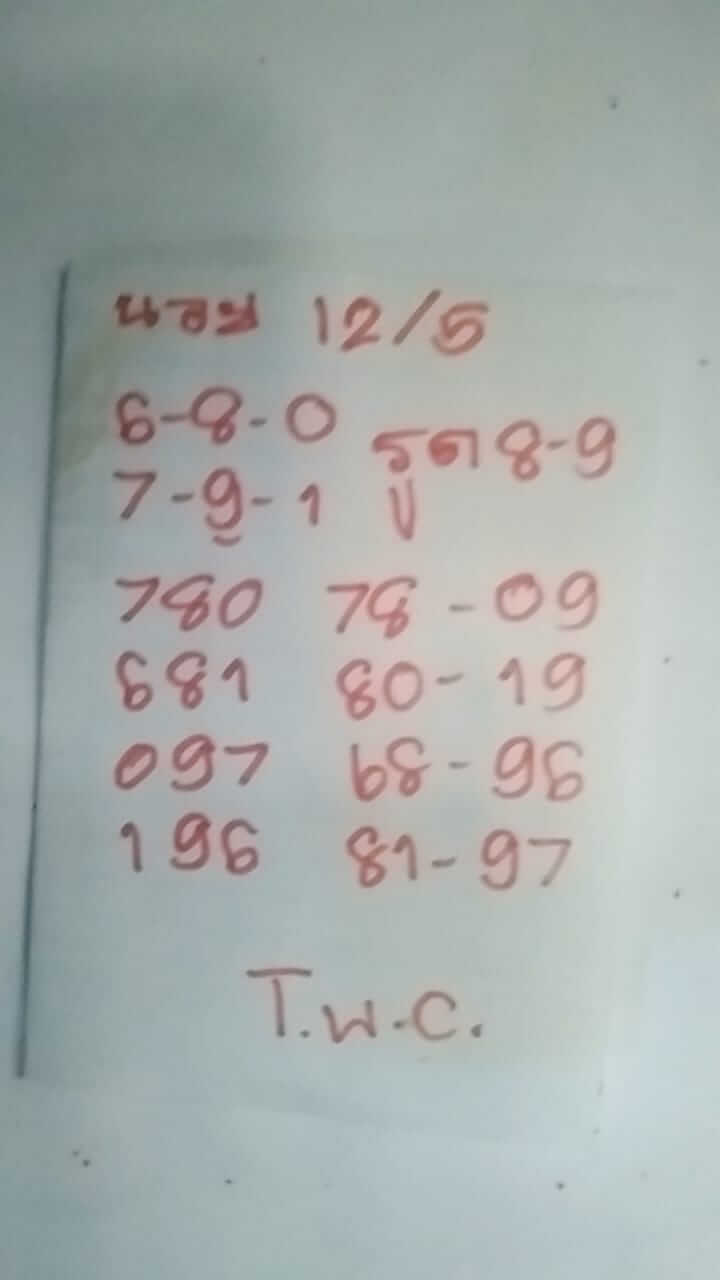 12/5
6-8-0
รูด 8-9
7-9-1
780 78 - 09
681 80 - 19
097 68 - 96
196 81 - 97
T.W.C.